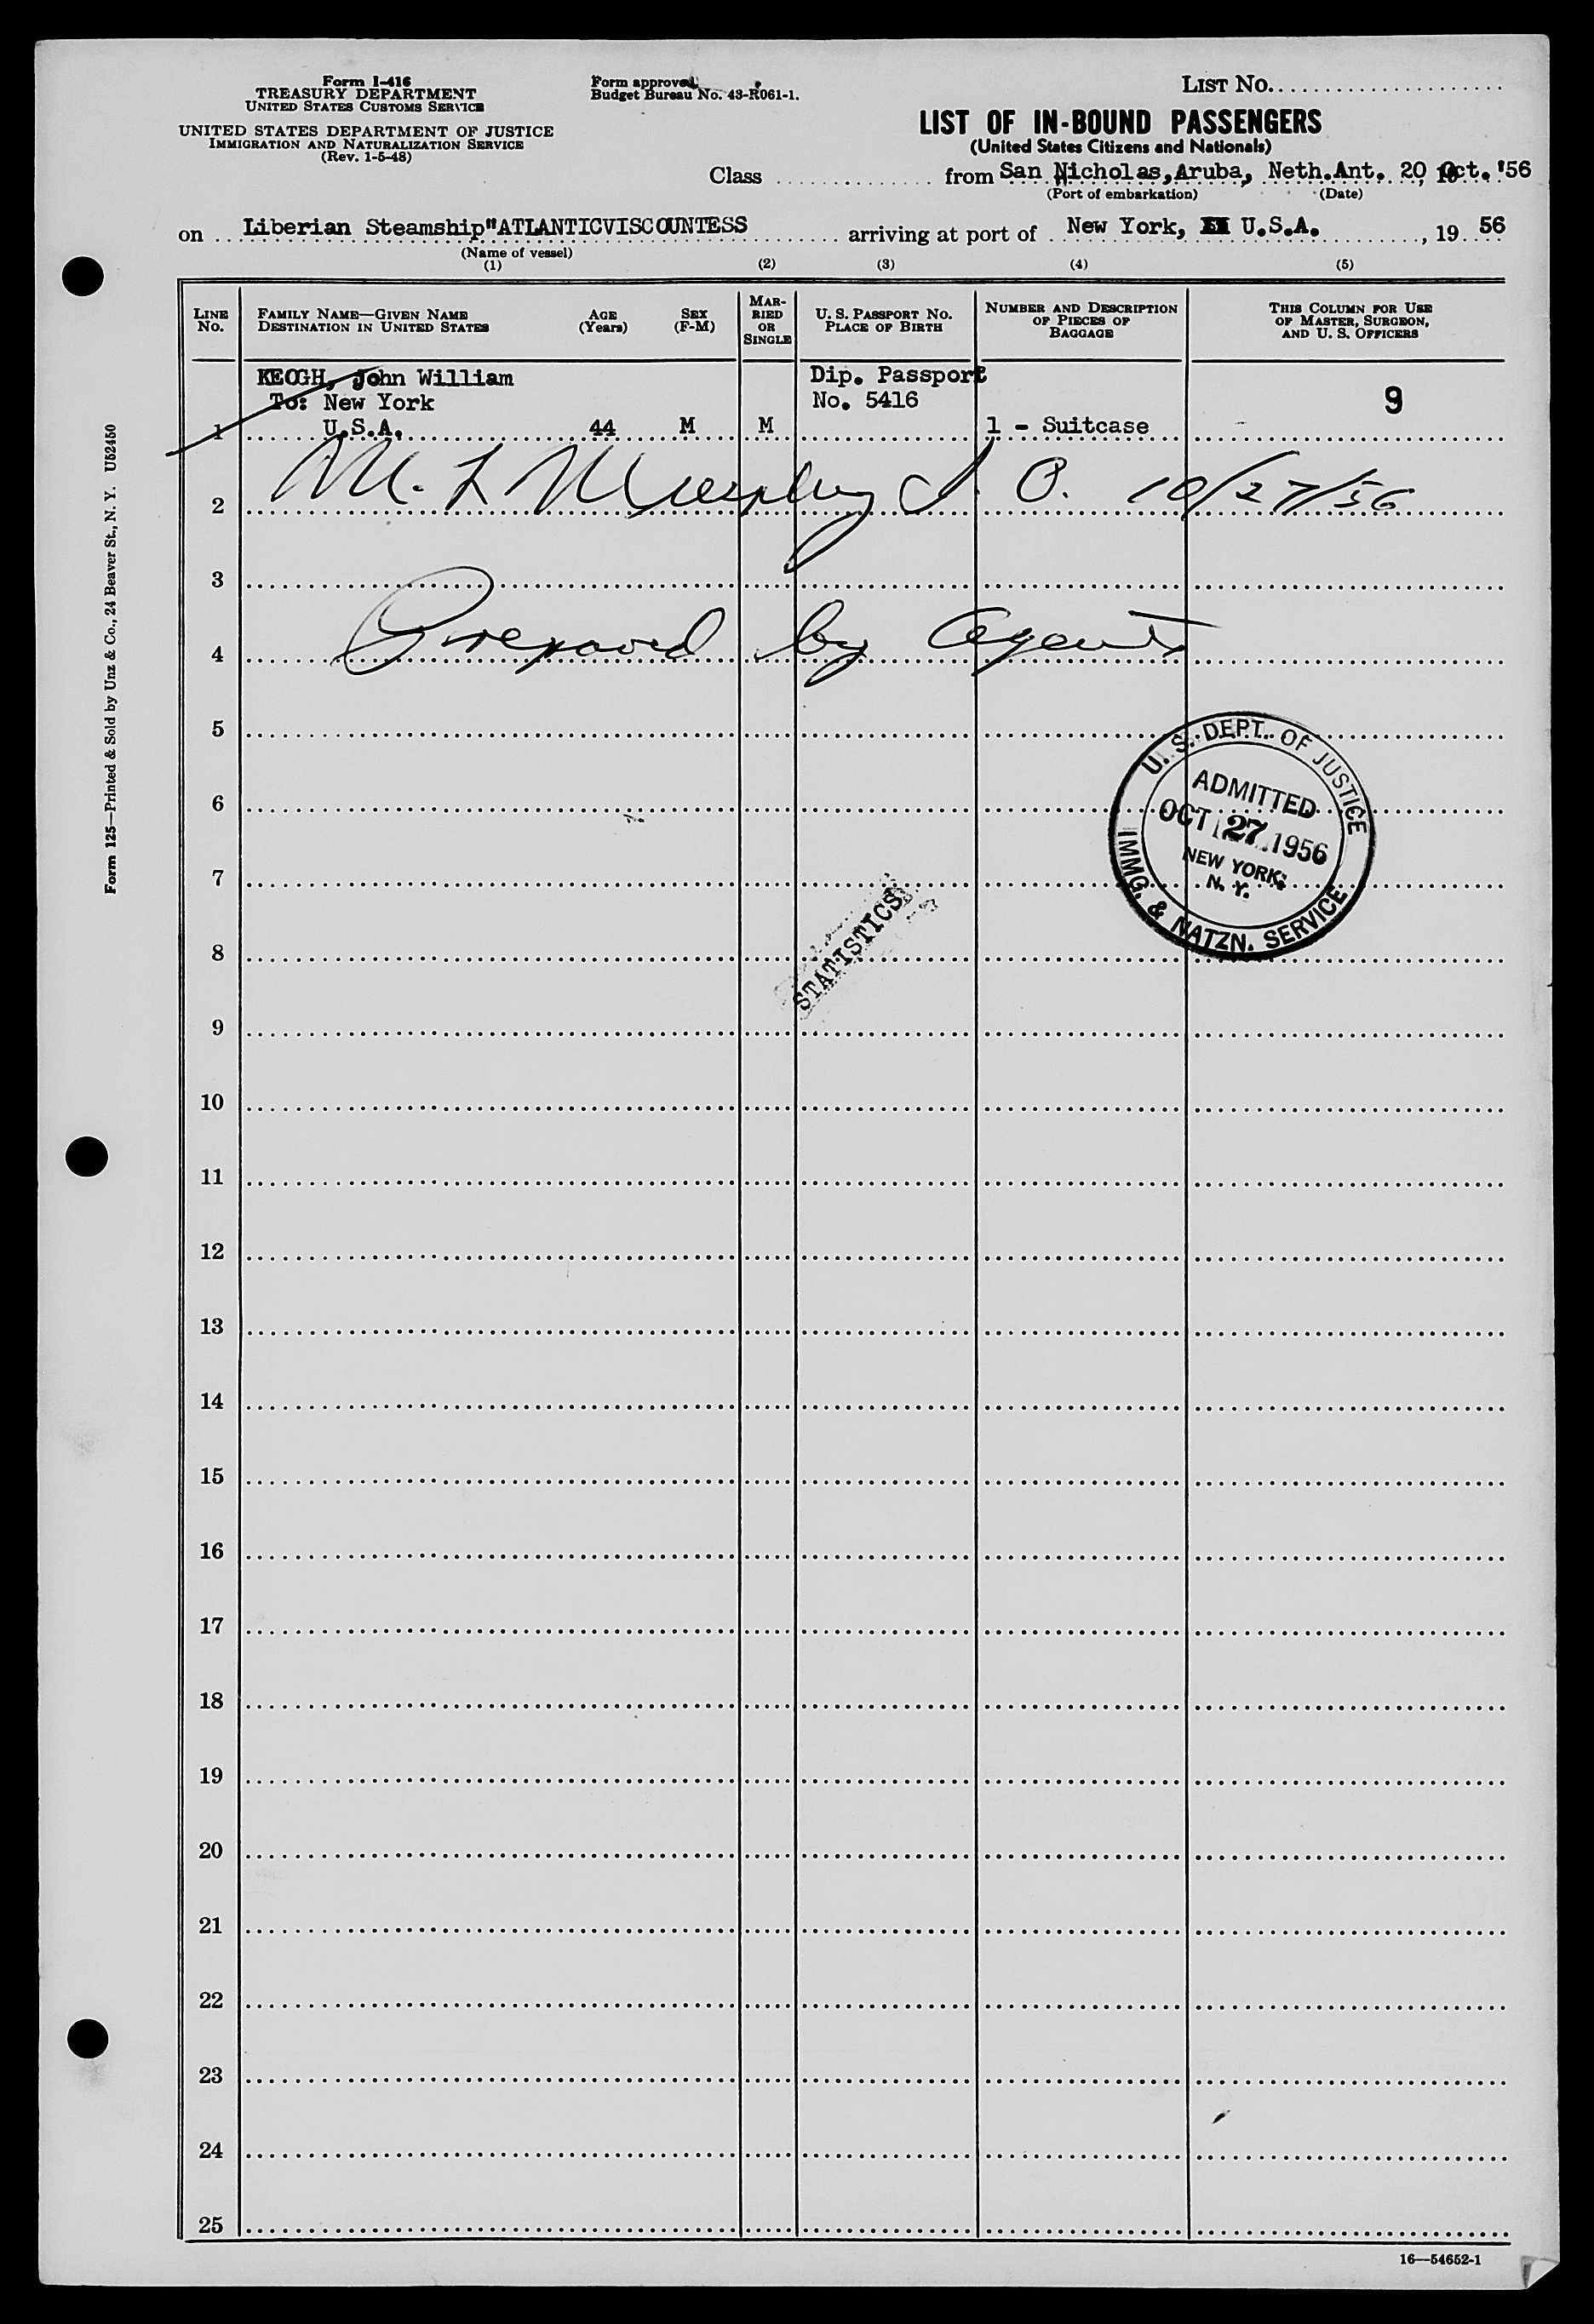 Form I-416
TREASURY DEPARTMENT
UNITED STATES CUSTOMS SERVICE
UNITED STATES DEPARTMENT OF JUSTICE
IMMIGRATION AND NATURALIZATION SERVICE
(Rev. 1-5-48)
Form approved.
Budget Bureau No. 43-R061-1.
LIST NO.
LIST OF IN-BOUND PASSENGERS
(United States Citizens and Nationals)
Class from San Nicholas, Aruba, Neth.Ant. 20 Oct. '56
(Port of embarkation) (Date)
on Liberian Steamship "ATLANTICVISCOUNTESS arriving at port of New York, U.S.A. , 19 56
(Name of vessel)
(1) (2) (3) (4) (5)
LINE NO. FAMILY NAME—GIVEN NAME DESTINATION IN UNITED STATES AGE (Years) SEX (F-M) MARRIED OR SINGLE U. S. PASSPORT NO. PLACE OF BIRTH NUMBER AND DESCRIPTION OF PIECES OF BAGGAGE THIS COLUMN FOR USE OF MASTER, SURGEON, AND U. S. OFFICERS
KEOGH, John William Dip. Passport
To: New York No. 5416 9
1 U.S.A. 44 M M 1 - Suitcase
2 M. L Murphy I. O. 10/27/56
3
4 Prepared by Agent
5
6
7
8
9
10
11
12
13
14
15
16
17
18
19
20
21
22
23
24
25
U. S. DEPT. OF JUSTICE
ADMITTED
OCT 27 1956
NEW YORK,
N. Y.
IMMG. & NATZN. SERVICE
STATISTICS
Form 125—Printed & Sold by Unz & Co., 24 Beaver St., N. Y. U52450
16—54652-1